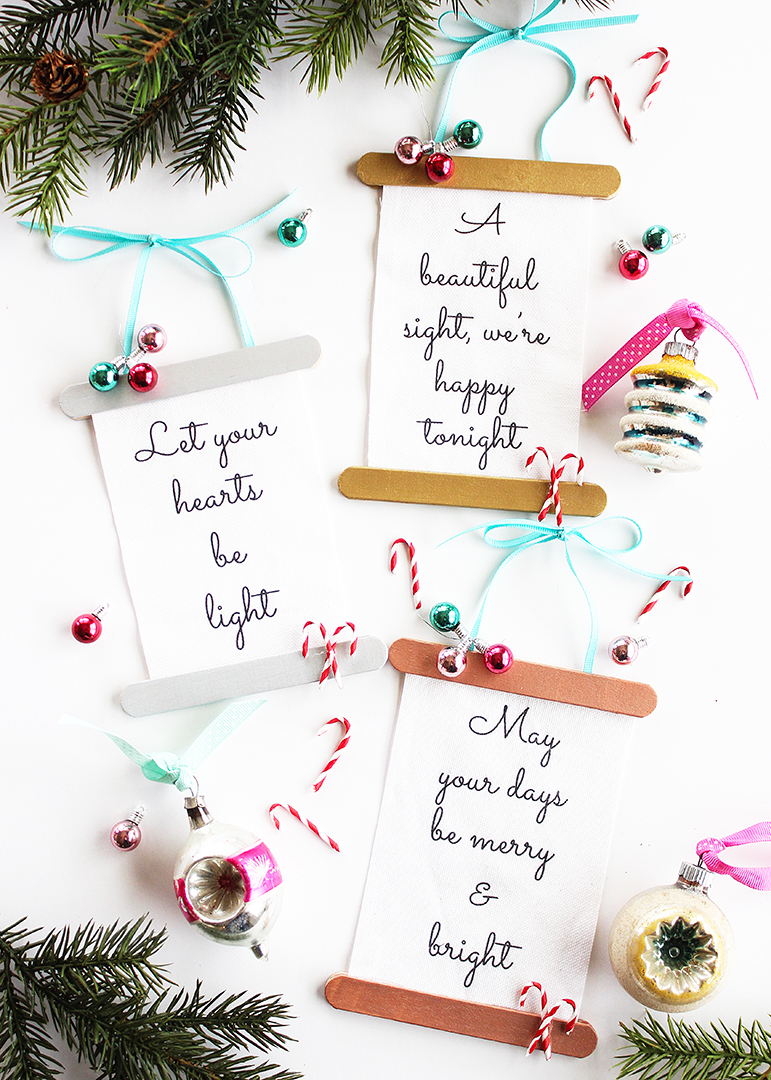 A
beautiful
sight, we're
happy
tonight
Let your
hearts
be
light
May
your days
be merry
&
bright